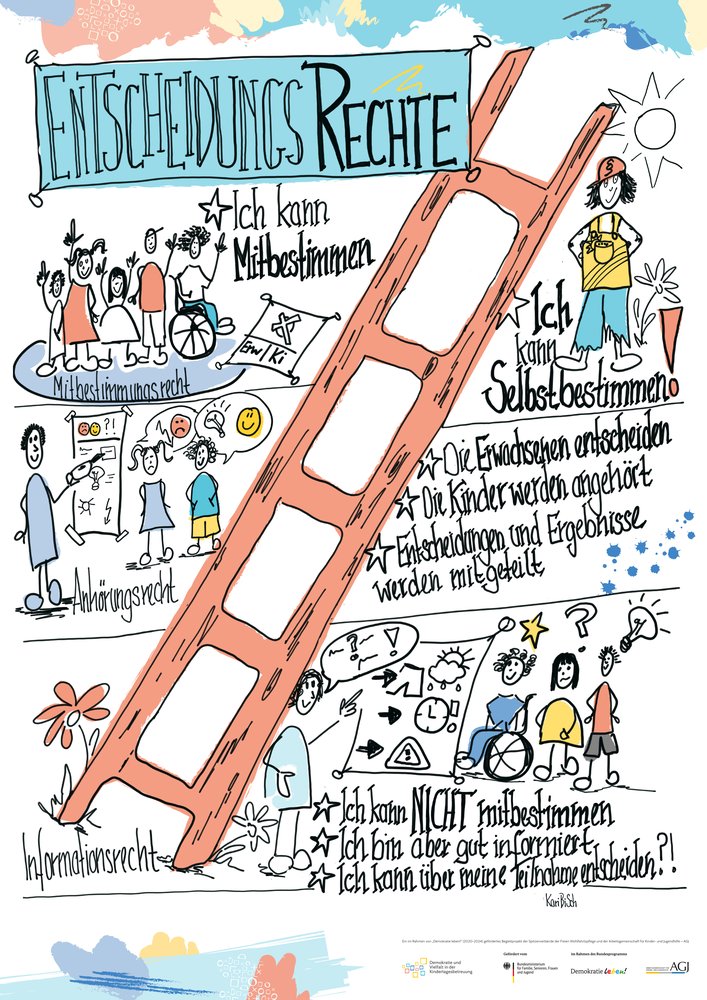 ENTSCHEIDUNGSRECHTE
Ich kann
Mitbestimmen
Erw | Ki
Mitbestimmungsrecht
Ich
kann
Selbstbestimmen!
?!
Anhörungsrecht
Die Erwachsenen entscheiden
Die Kinder werden angehört
Entscheidungen und Ergebnisse
werden mitgeteilt
?
? !
!
Informationsrecht
Ich kann NICHT mitbestimmen
Ich bin aber gut informiert
Ich kann über meine Teilnahme entscheiden?!
KariBiSch
Demokratie und
Vielfalt in der
Kindertagesbetreuung
Gefördert vom
Bundesministerium
für Familie, Senioren, Frauen
und Jugend
im Rahmen des Bundesprogramms
Demokratie leben!
AGJ